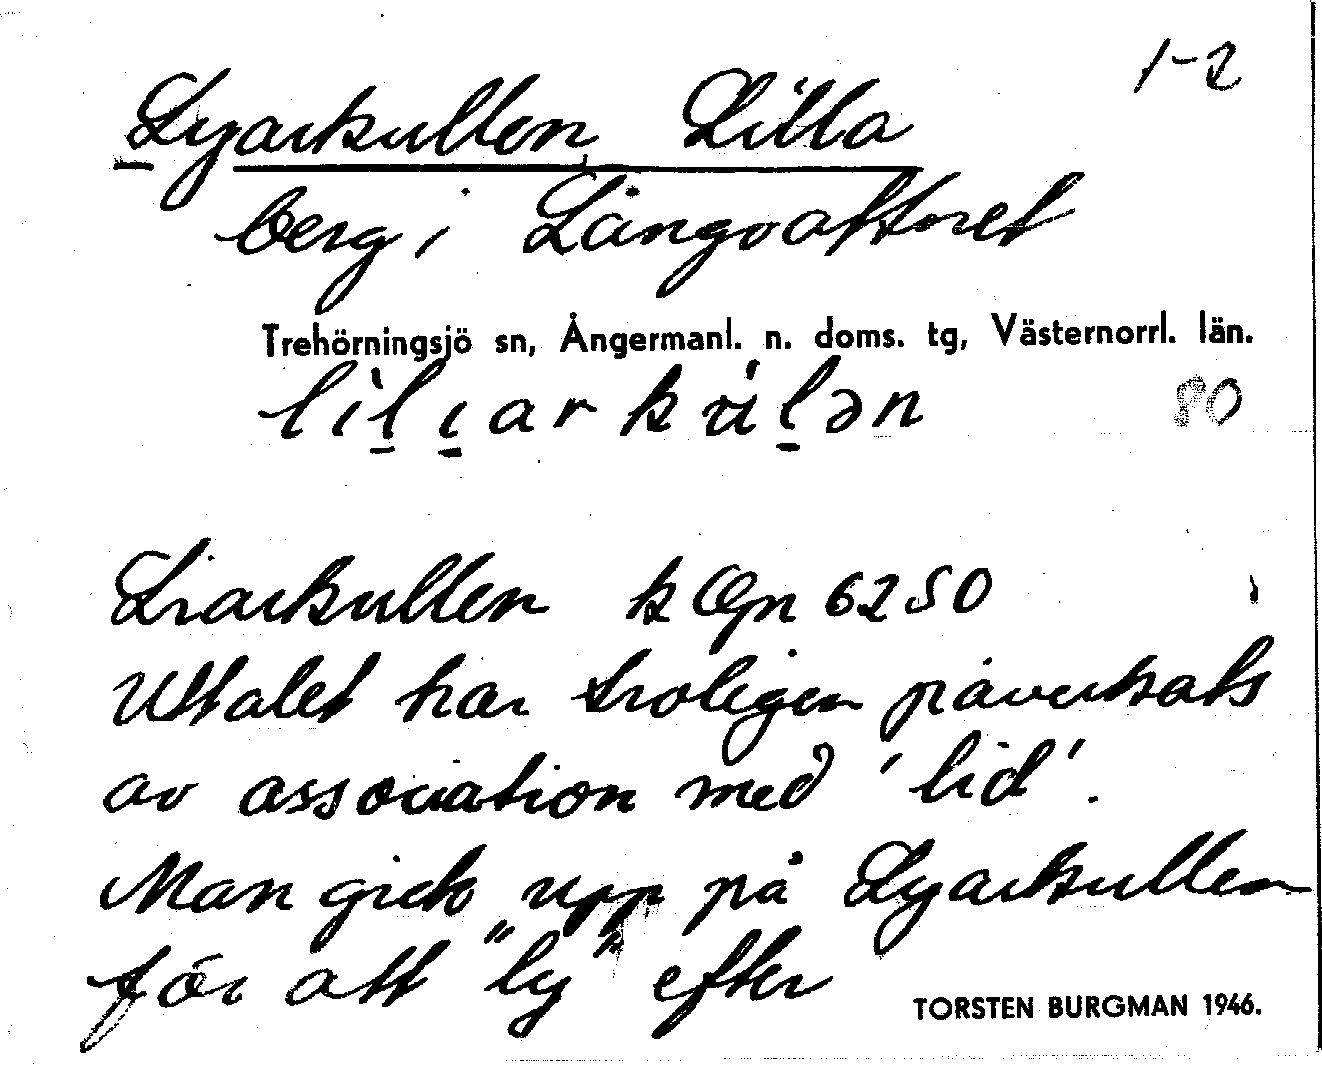 1-2
Lyarkullen, Lilla
berg i Långvattnet
Trehörningsjö sn, Ångermanl. n. doms. tg, Västernorrl. län.
80
Liarkullen k Öpn 6250
Uttalet har troligen påverkats
av association med 'lid'.
Man gick upp på Lyarkullen
för att "ly" efter
TORSTEN BURGMAN 1946.